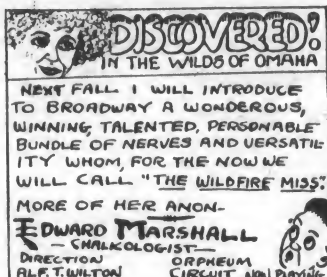 DISCOVERED!
IN THE WILDS OF OMAHA
NEXT FALL I WILL INTRODUCE
TO BROADWAY A WONDEROUS,
WINNING, TALENTED, PERSONABLE
BUNDLE OF NERVES AND VERSATIL-
ITY WHOM, FOR THE NOW WE
WILL CALL "THE WILDFIRE MISS".
MORE OF HER ANON-
EDWARD MARSHALL
-CHALKOLOGIST-
DIRECTION ORPHEUM
ALF. T. WILTON CIRCUIT NOW PLAYING